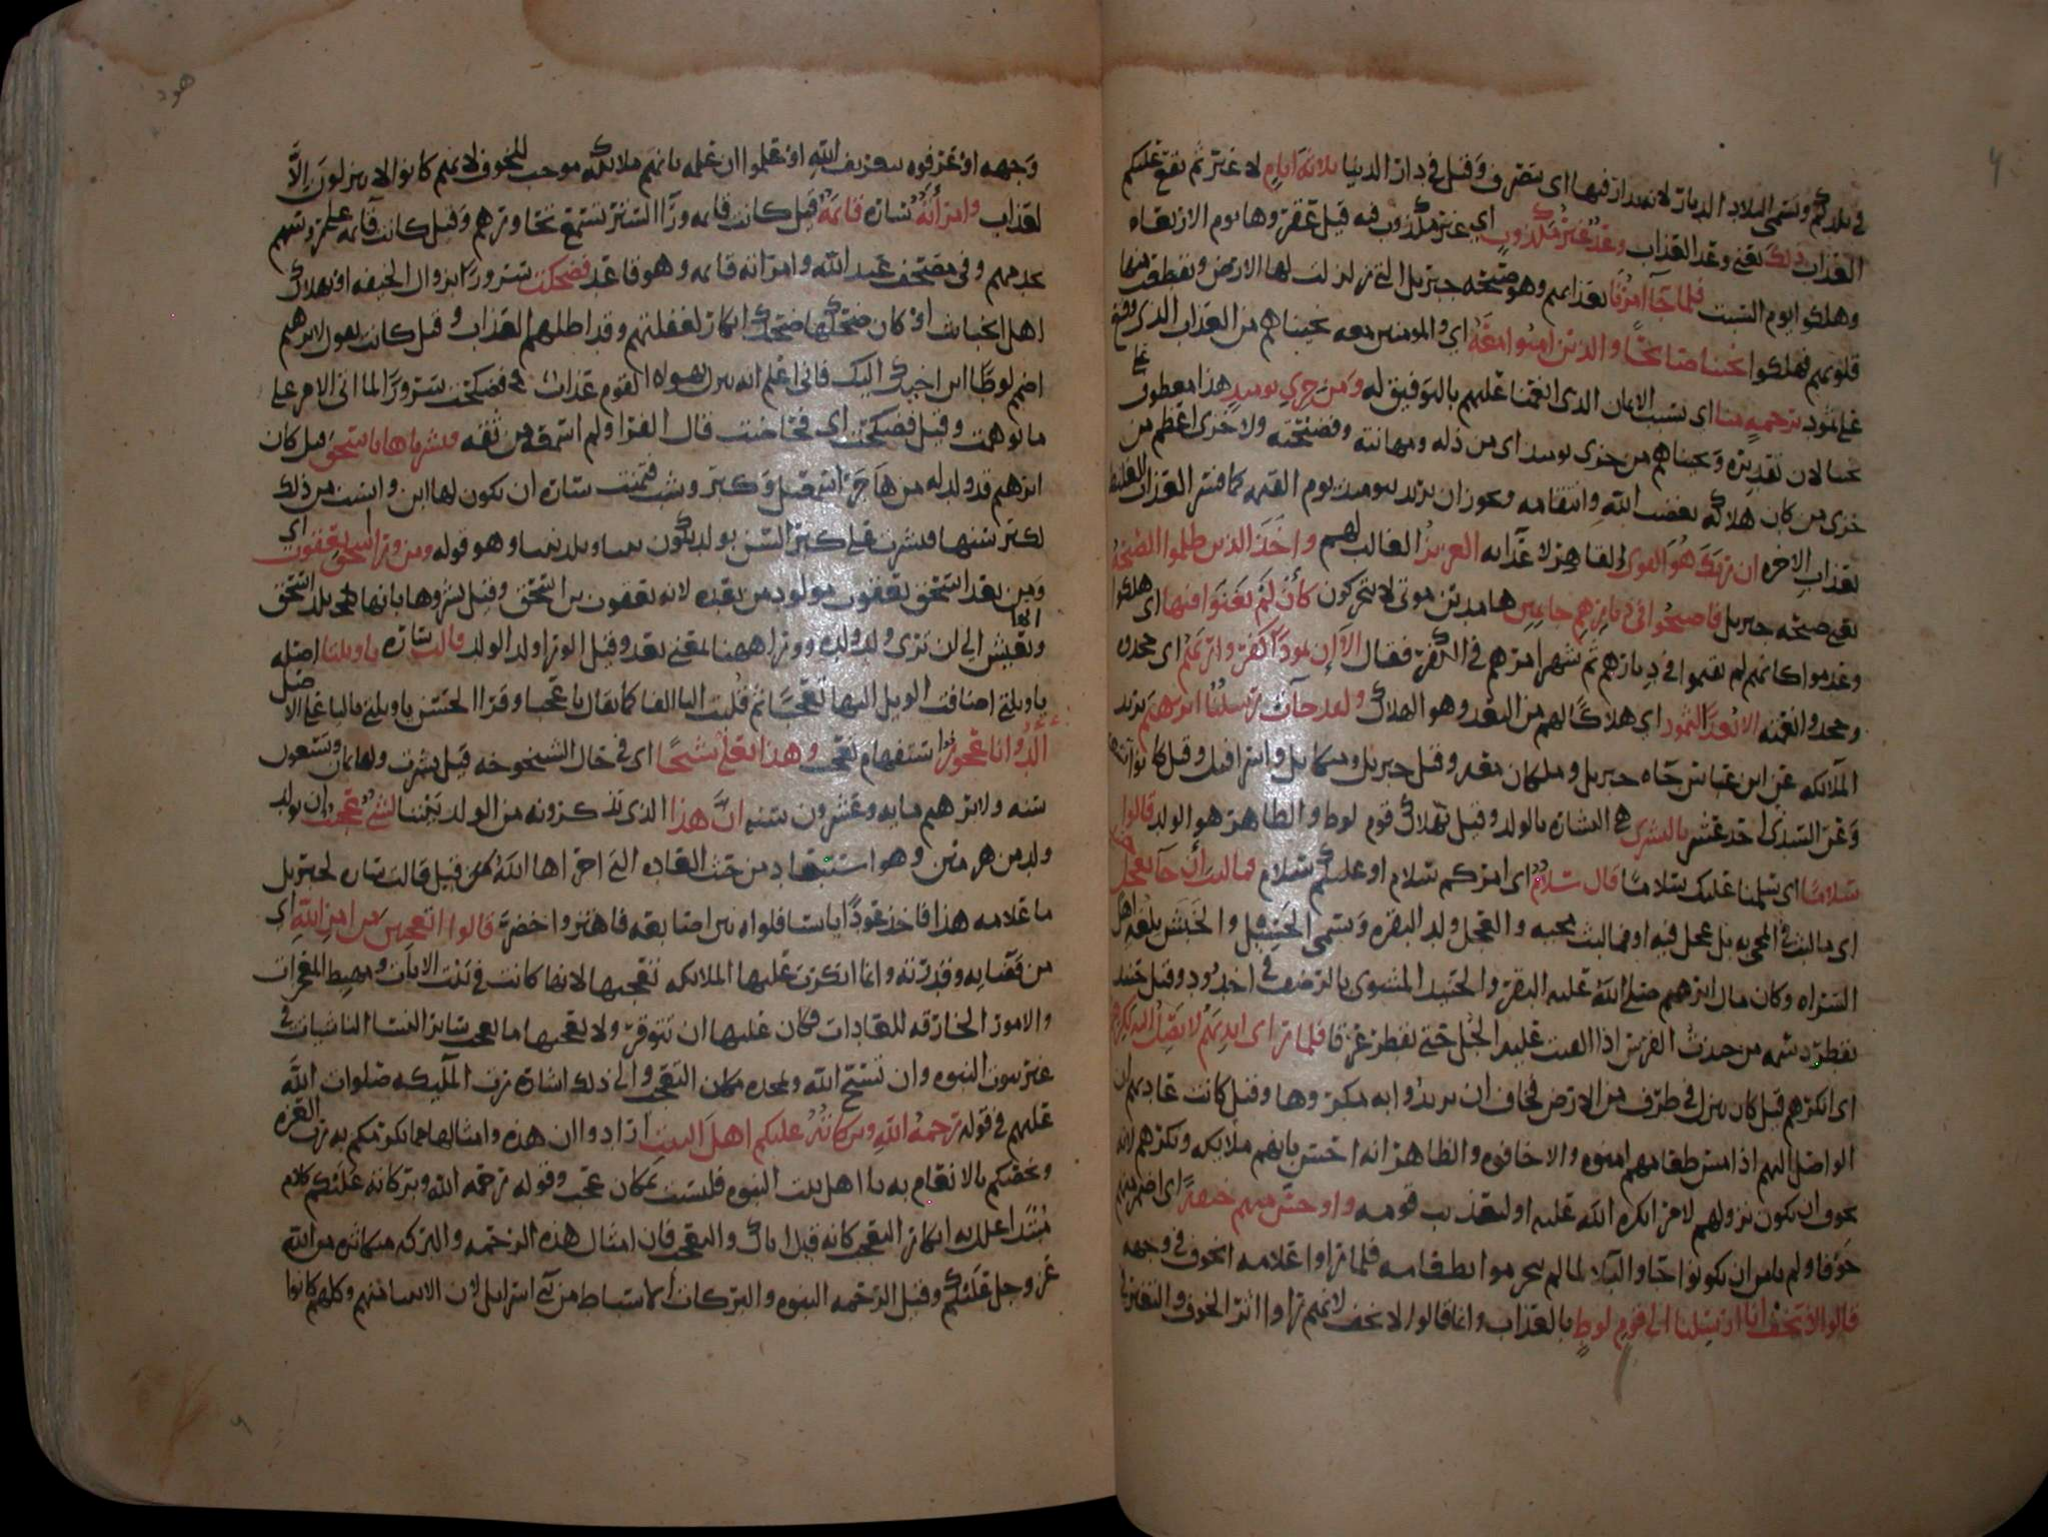 في بلدكم وتسمى البلاد الديار لانه يدار فيها اى يتصرف وقيل في دار الدنيا ثلاثة ايام لا غير ثم يقع عليكم
العذاب ذلك يعني وعد العذاب وعد غير مكذوب اي غير مكذوب فيه قيل عقروها يوم الاربعاء
وهلكوا يوم السبت فلما جآ امرنا بعذابهم وهو صيحه جبريل التي زلزلت لها الارض وتقطعت منها
قلوبهم فهلكوا نجينا صالحًا والذين امنوا معه اي والمومنين معه نجيناهم من العذاب الذي وقع
على ثمود برحمةٍ منا اى بسبب الايمان الذى انعمنا عليهم بالتوفيق له ومن خزي يوميذٍ هذا معطوف على
نجينا لان تقديره ونجيناهم من خزى يوميذ اى من ذله ومهانته وفضيحته ولا خزى اعظم من
خزى من كان هلاكه بغضب الله وانتقامه ويجوز ان يريد بيوميذ يوم القيمه كما فسر العذاب الغليظ
بعذاب الاخره ان ربك هو القوى القاهر لاعدآيه العزيز الغالب لهم واخذ الذين ظلموا الصيحة
يعني صيحه جبريل فاصبحوا في ديارهم جاثمين هامدين موتى لا يتحركون كأن لم يغنوا فيها اى هلكوا
وعدموا كانهم لم يقيموا في ديارهم ثم شهر امرهم في الكفر فقال الا إن ثمودًا كفروا ربهم اى جحدوه
وجحدوا نعمه الا بعدًا لثمود اي هلاكًا لهم من البعد وهو الهلاك ولقد جآت رسلنا ابرهيم يريد
الملآئكه عن ابن عباس جآه جبريل وملكان معه وقيل جبريل وميكايل واسرافيل وقيل كانوا تسعه
وعن السدّي احد عشر بالبشرى هي البشاره بالولد وقيل بهلاك قوم لوط والظاهر هو الولد قالوا
سلامًا اى سلمنا عليك سلامًا قال سلامٌ اى امركم سلام او عليكم سلام فما لبث أن جآ بعجل
اى ما لبث في المجي به بل عجل فيه او فما لبث مجيه والعجل ولد البقره ويسمى الحسيل والخبش بلغه اهل
السراه وكان مال ابرهيم صلى الله عليه البقر والحنيذ المشوى بالرضف في اخدود وقيل حنيذ
يقطر دسمه من حنذت الفرس اذا القيت عليه الجُل حتى يقطر عرقا فلما راى ايديهم لا تصل اليه نكرهم
اى انكرهم قيل كان ينزل في طرف من الارض فخاف ان يريدوا به مكروها وقيل كانت عادتهم ان
الواصل اليهم اذا مس طعامهم امنوه والا خافوه والظاهر انه احس بانهم ملايكه ونكرهم لانه
تخوف ان يكون نزولهم لامر انكره الله عليه او لتعذيب قومه واوجس منهم خيفةً اى اضمر منهم
خوفا ولم يامن ان يكونوا جاوا لبلاءٍ لما لم يتحرموا بطعامه فلما راوا علامه الخوف في وجهه
قالوا لا تخف انا ارسلنا الى قوم لوطٍ بالعذاب وانما قالوا لا تخف لانهم راوا اثر الخوف والتغير في
هود
وجهه او عرفوه بتعريف الله او علموا ان علمه بانهم ملائكه موجب للخوف لانهم كانوا لا ينزلون إلا
لعذاب وامرأته ساره قائمةٌ قيل كانت قايمه ورآ الستر تستمع تحاورهم وقيل كانت قآيمه على رؤسهم
تخدمهم وفي مصحف عبد الله وامراته قايمه وهو قاعد فضحكت سرورًا بزوال الخيفه او بهلاك
اهل الخبائث او كان ضحكها ضحك انكار لغفلتهم وقد اظلهم العذاب وقيل كانت تقول لابرهيم
اضمم لوطًا ابن اخيك اليك فاني اعلم انه ينزل بهولاء القوم عذاب فضحكت سرورًا لما اتى الامر على
ما توهمت وقيل فضحكت اى فحاضت قال الفرا ولم اسمعه من ثقه فبشرناها باسحق قيل كان
ابرهيم قد ولد له من هاجر اسمعيل وكبر وشب فتمنت ساره ان يكون لها ابن وايست من ذلك
لكبر سنها فبشرت على كبر السن بولد يكون نبيا ويلد نبيا وهو قوله ومن ورا اسحق يعقوب اي
ومن بعد اسحق يعقوب مولود من بعده لانه يعقوب بن اسحق وقيل بشروها بانها تلد اسحق
وتعيش الى ان ترى ولد ولده وورا ههنا بمعنى بعد وقيل الورا ولد الولد قالت ساره ياويلتا اصله
ياويلتي اضافت الويل اليها تعجبًا ثم قلبت اليا الفا كما يقال يا عجبا وقرا الحسن ياويلتي باليا على الاصل
أألد وانا عجوز استفهام تعجب وهذا بعلي شيخًا اى في حال الشيخوخه قيل بشرت ولها ثمان وتسعون
سنه ولابرهيم مايه وعشرون سنه انّ هذا الذى تذكرونه من الولد بيننا لشيء عجيب ان يولد
ولد من هرمين وهو استبعاد من حيث العاده التي اجراها الله قيل قالت ساره لجبريل
ما علامه هذا فاخذ عودًا يابسا فلواه بين اصابعه فاهتز واخضر قالوا اتعجبين من امر الله اى
من قضايه وقدرته وانما انكرت عليها الملايكه تعجبها لانها كانت في بيت الايات ومهبط المعجزات
والامور الخارقه للعادات فكان عليها ان تتوقر ولا يعجبها ما يعجب سائر النسا الناشيات في
غير بيوت النبوه وان تسبح الله وتمجده مكان التعجب والى ذلك اشارت الملآيكه صلوات الله
عليهم في قوله رحمة الله وبركاته عليكم اهل البيت ارادوا ان هذه وامثالها مما يكرمكم به رب العزه
ويخصكم بالانعام به يا اهل بيت النبوه فليست بمكان عجب وقوله رحمه الله وبركاته عليكم كلام
مُبتدا علل به انكار التعجب كانه قيل اياك والتعجب فان امثال هذه الرحمه والبركه متكاثره من الله
عز وجل عليكم وقيل الرحمه النبوه والبركات الاسباط من بني اسرايل لان الانبيا منهم وكلهم كانوا